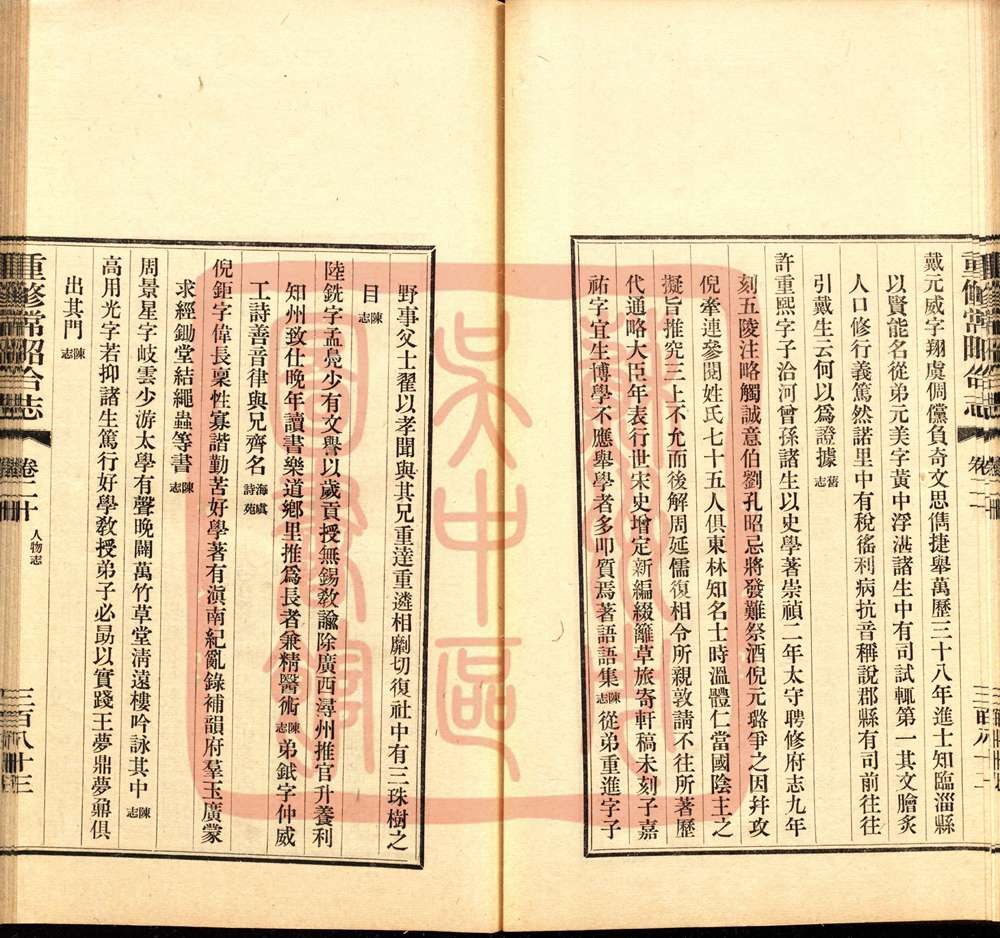 戴元威字翔虞倜儻負奇文思雋捷舉萬歷三十八年進士知臨淄縣
以賢能名從弟元美字黃中浮湛諸生中有司試輒第一其文膾炙
人口修行義篤然諾里中有稅徭利病抗音稱說郡縣有司前往往
引戴生云何以爲證據舊志
許重熙字子洽河曾孫諸生以史學著崇禎二年太守聘修府志九年
刻五陵注略觸誠意伯劉孔昭忌將發難祭酒倪元璐爭之因幷攻
倪牽連參閱姓氏七十五人俱東林知名士時溫體仁當國陰主之
擬旨推究三上不允而後解周延儒復相令所親敦請不往所著歷
代通略大臣年表行世宋史增定新編綴籬草旅寄軒稿未刻子嘉
祐字宜生博學不應舉學者多叩質焉著語語集陳志從弟重進字子
野事父士翟以孝聞與其兄重達重遴相劘切復社中有三珠樹之
目陳志
陸銑字孟鳧少有文譽以歲貢授無錫敎諭除廣西潯州推官升養利
知州致仕晚年讀書樂道鄉里推爲長者兼精醫術陳志弟鉽字仲威
工詩善音律與兄齊名海虞詩苑
倪鉅字偉長稟性寡諧勤苦好學著有滇南紀亂錄補韻府羣玉廣蒙
求經鋤堂結繩蟲等書陳志
周景星字岐雲少游太學有聲晚闢萬竹草堂淸遠樓吟詠其中陳志
高用光字若抑諸生篤行好學敎授弟子必勗以實踐王夢鼎夢鼐俱
出其門陳志
重修常昭合志 卷二十 人物志 三百八十三